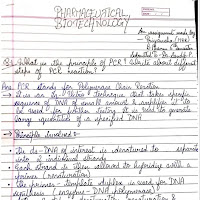 PHARMACEUTICAL
BIOTECHNOLOGY
An assignment made by
Q. What is the principle of PCR? Write about different
steps of PCR reaction?
Ans. PCR stands for Polymerase Chain Reaction
→ It is an In-Vitro technique that takes specific
sequence of DNA of small amount & amplifies it to
be used for further testing. It is used to generate
large quantities of a specified DNA
→ Principle Involved :-
The ds-DNA of interest is denatured to separate
into 2 individual strands
Each strand is then allowed to hybridize with a
primer (annealing)
The primer-template duplex is used for DNA
synthesis (enzyme - DNA polymerase)